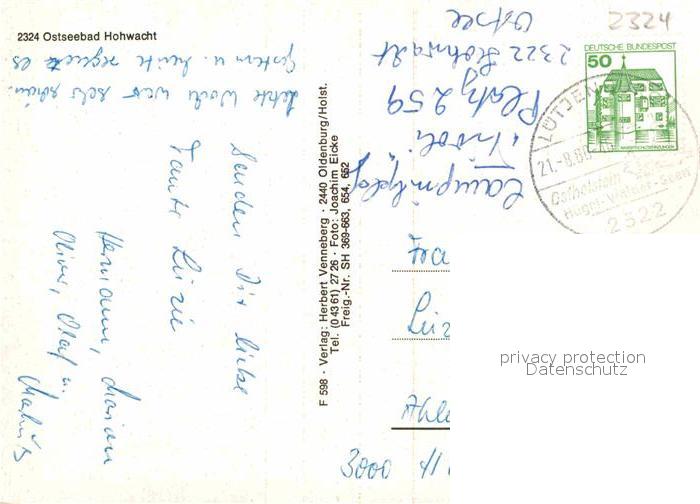 2324 Ostseebad Hohwacht
2324
DEUTSCHE BUNDESPOST
50
LÜTJEN
21.-8.80
Hügel-Wälder-Seen
2322
Senden Dir liebe
Tante Luzie
Hermann, Marian
Oliver, Olaf u.
Letzte Woche war sehr schön.
Gestern u. heute regnet es
Campingplatz
„Tivoli“
Platz 259
2322 Hohwacht
Ostsee
F 598 · Verlag: Herbert Venneberg · 2440 Oldenburg/Holst.
Tel. (0 43 61) 27 26 · Foto: Joachim Eicke
Freig.-Nr. SH 369-663, 654, 652
Fra
Luz
Ahle
3000 H
privacy protection
Datenschutz